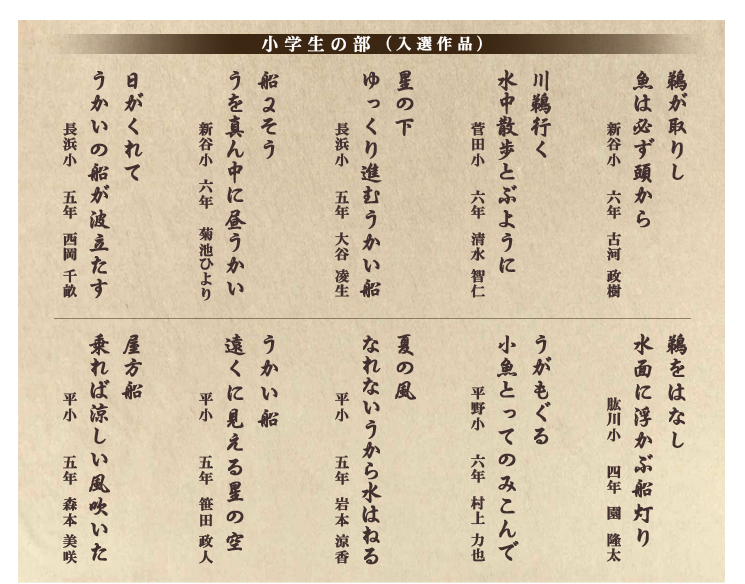 小学生の部（入選作品）
鵜が取りし
魚は必ず頭から
新谷小 六年 古河 政樹
川鵜行く
水中散歩とぶように
菅田小 六年 清水 智仁
星の下
ゆっくり進むうかい船
長浜小 五年 大谷 凌生
船2そう
うを真ん中に昼うかい
新谷小 六年 菊池ひより
日がくれて
うかいの船が波立たす
長浜小 五年 西岡 千畝
鵜をはなし
水面に浮かぶ船灯り
肱川小 四年 園 隆太
うがもぐる
小魚とってのみこんで
平野小 六年 村上 力也
夏の風
なれないうから水はねる
平小 五年 岩本 涼香
うかい船
遠くに見える星の空
平小 五年 笹田 政人
屋方船
乗れば涼しい風吹いた
平小 五年 森本 美咲